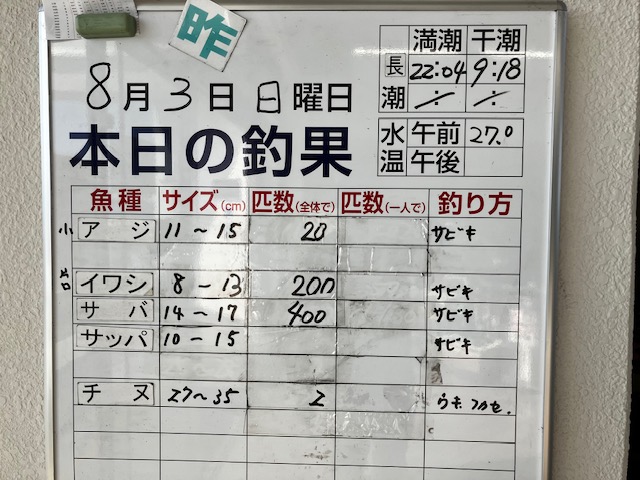 昨
8月3日日曜日
満潮 干潮
長潮 22:04 9:18
/:/ /:/
本日の釣果
水温 午前 27.0
午後
魚種 サイズ(cm) 匹数(全体で) 匹数(一人で) 釣り方
小 アジ 11～15 20 サビキ
カタクチ イワシ 8－13 200 サビキ
サバ 14－17 400 サビキ
サッパ 10－15 サビキ
チヌ 27～35 2 ウキフカセ.